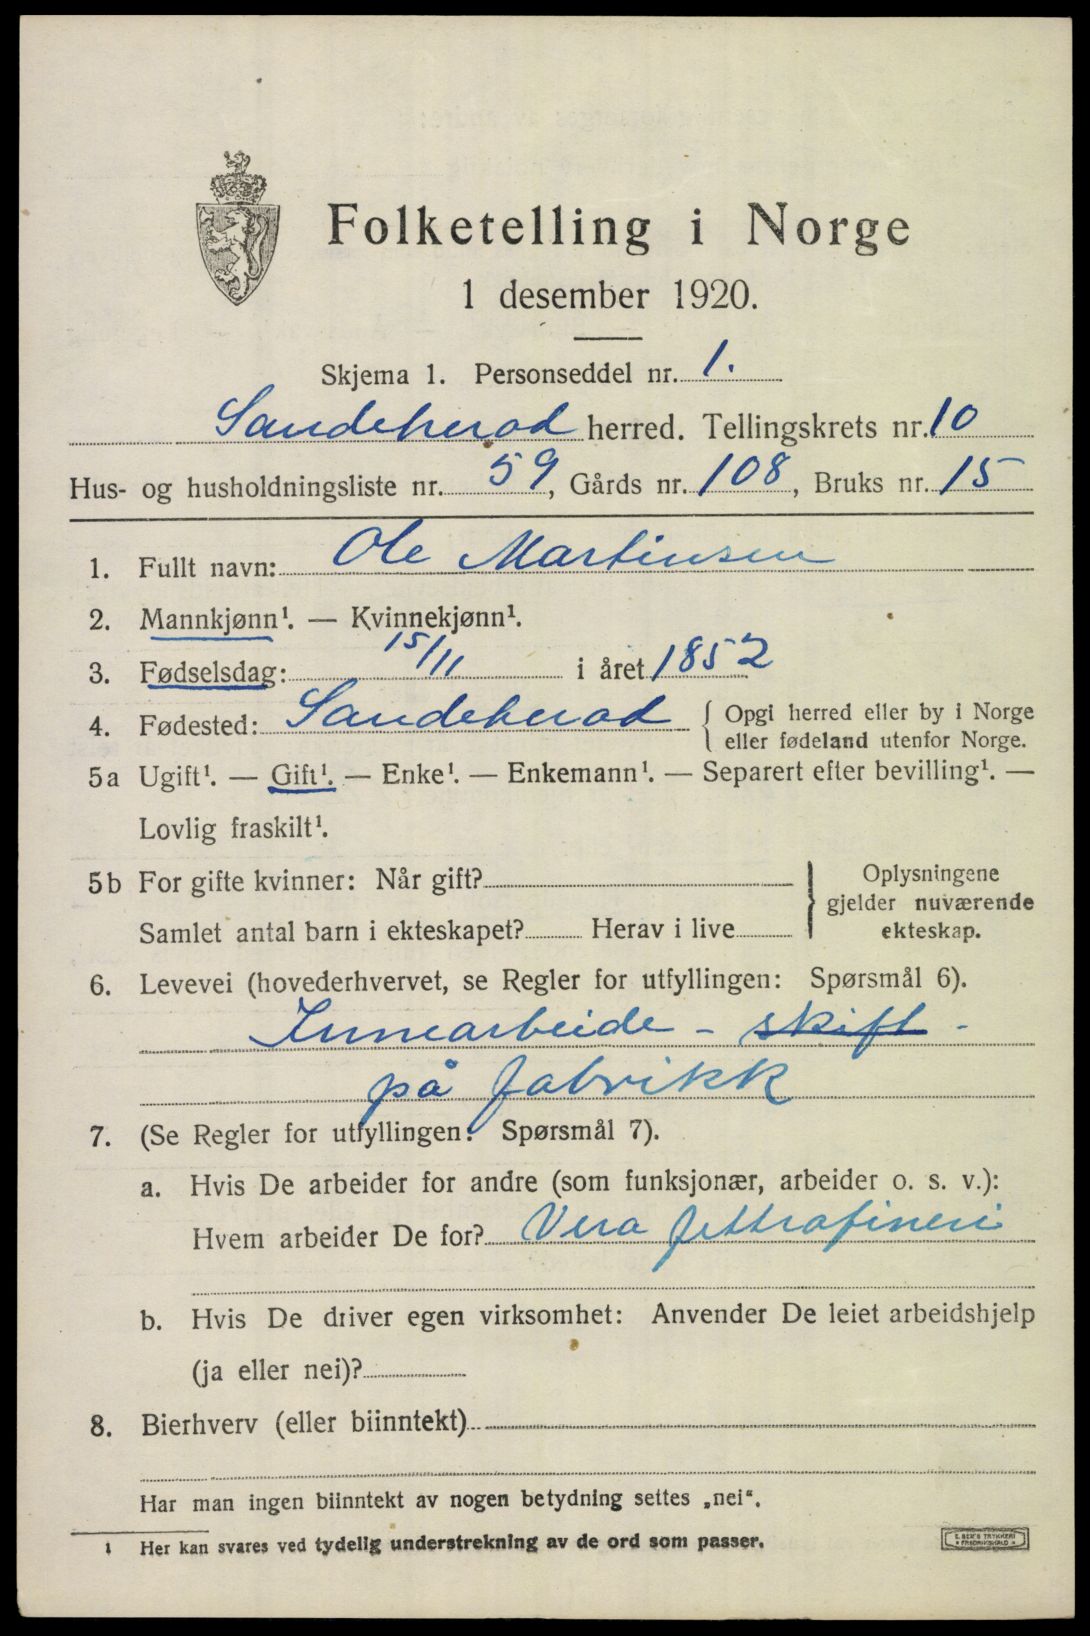 Folketelling i Norge
1 desember 1920.
Skjema 1. Personseddel nr. 1.
Sandeherad herred. Tellingskrets nr. 10
Hus- og husholdningsliste nr. 59, Gårds nr. 108, Bruks nr. 15
1. Fullt navn: Ole Martinsen
2. Mannkjønn¹. — Kvinnekjønn¹.
3. Fødselsdag: 15/11 i året 1852
4. Fødested: Sandeherad { Opgi herred eller by i Norge
eller fødeland utenfor Norge.
5a Ugift¹. — Gift¹. — Enke¹. — Enkemann¹. — Separert efter bevilling¹. —
Lovlig fraskilt¹.
5b For gifte kvinner: Når gift?
Samlet antal barn i ekteskapet? Herav i live
Oplysningene
gjelder nuværende
ekteskap.
6. Levevei (hovederhvervet, se Regler for utfyllingen: Spørsmål 6).
Innearbeide - skift -
på fabrikk
7. (Se Regler for utfyllingen: Spørsmål 7).
a. Hvis De arbeider for andre (som funksjonær, arbeider o. s. v.):
Hvem arbeider De for? Vera fettrafineri
b. Hvis De driver egen virksomhet: Anvender De leiet arbeidshjelp
(ja eller nei)?
8. Bierhverv (eller biinntekt)
Har man ingen biinntekt av nogen betydning settes „nei“.
1 Her kan svares ved tydelig understrekning av de ord som passer.
E. SEM'S TRYKKERI
FREDRIKSHALD